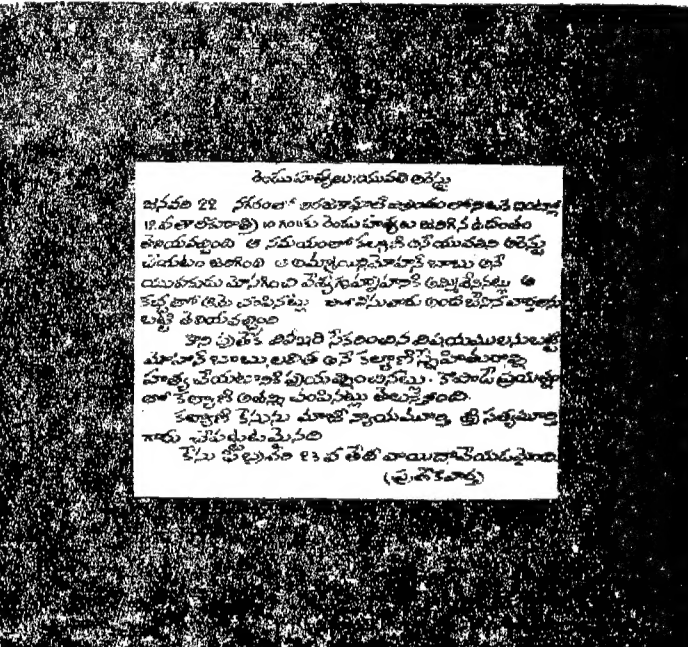 రెండు హత్యలు: యువతి అరెస్టు
జనవరి 22 నగరంలో ఇంట్లో
రాత్రి) 10 గంలకు రెండు హత్యలు జరిగిన ఉదంతం
తెలియవచ్చింది ఆ సమయంలో కళ్యాణి అనే యువతిని అరెస్టు
చేయటం జరిగింది ఆ అమ్మాయిని మోహన్ బాబు అనే
యువకుడు మోసగించి వేశ్యాగృహానికి అమ్మివేసినట్లు ఆ
కక్ష్యతో ఆమె చంపినట్లు పోలీసువారు అంద జేసిన వార్తలను
బట్టి తెలియవచ్చింది
కాని ప్రత్యేక విలేఖరి సేకరించిన విషయములనుబట్టి
మోహన్ బాబు లలిత అనే కల్యాణి స్నేహితురాల్ని
హత్య చేయటానికి ప్రయత్నించినట్లు. కాపాడే ప్రయత్నం
లో కళ్యాణి అతన్ని చంపినట్లు తెలుస్తోంది.
కల్యాణి కేసును మాజీ న్యాయమూర్తి శ్రీ సత్యమూర్తి
గారు చేపట్టుటమైనది
కేసు ఫిబ్రవరి 23 వ తేదీ వాయిదా వేయడమైంది.
(ప్ర.లోకవార్త)